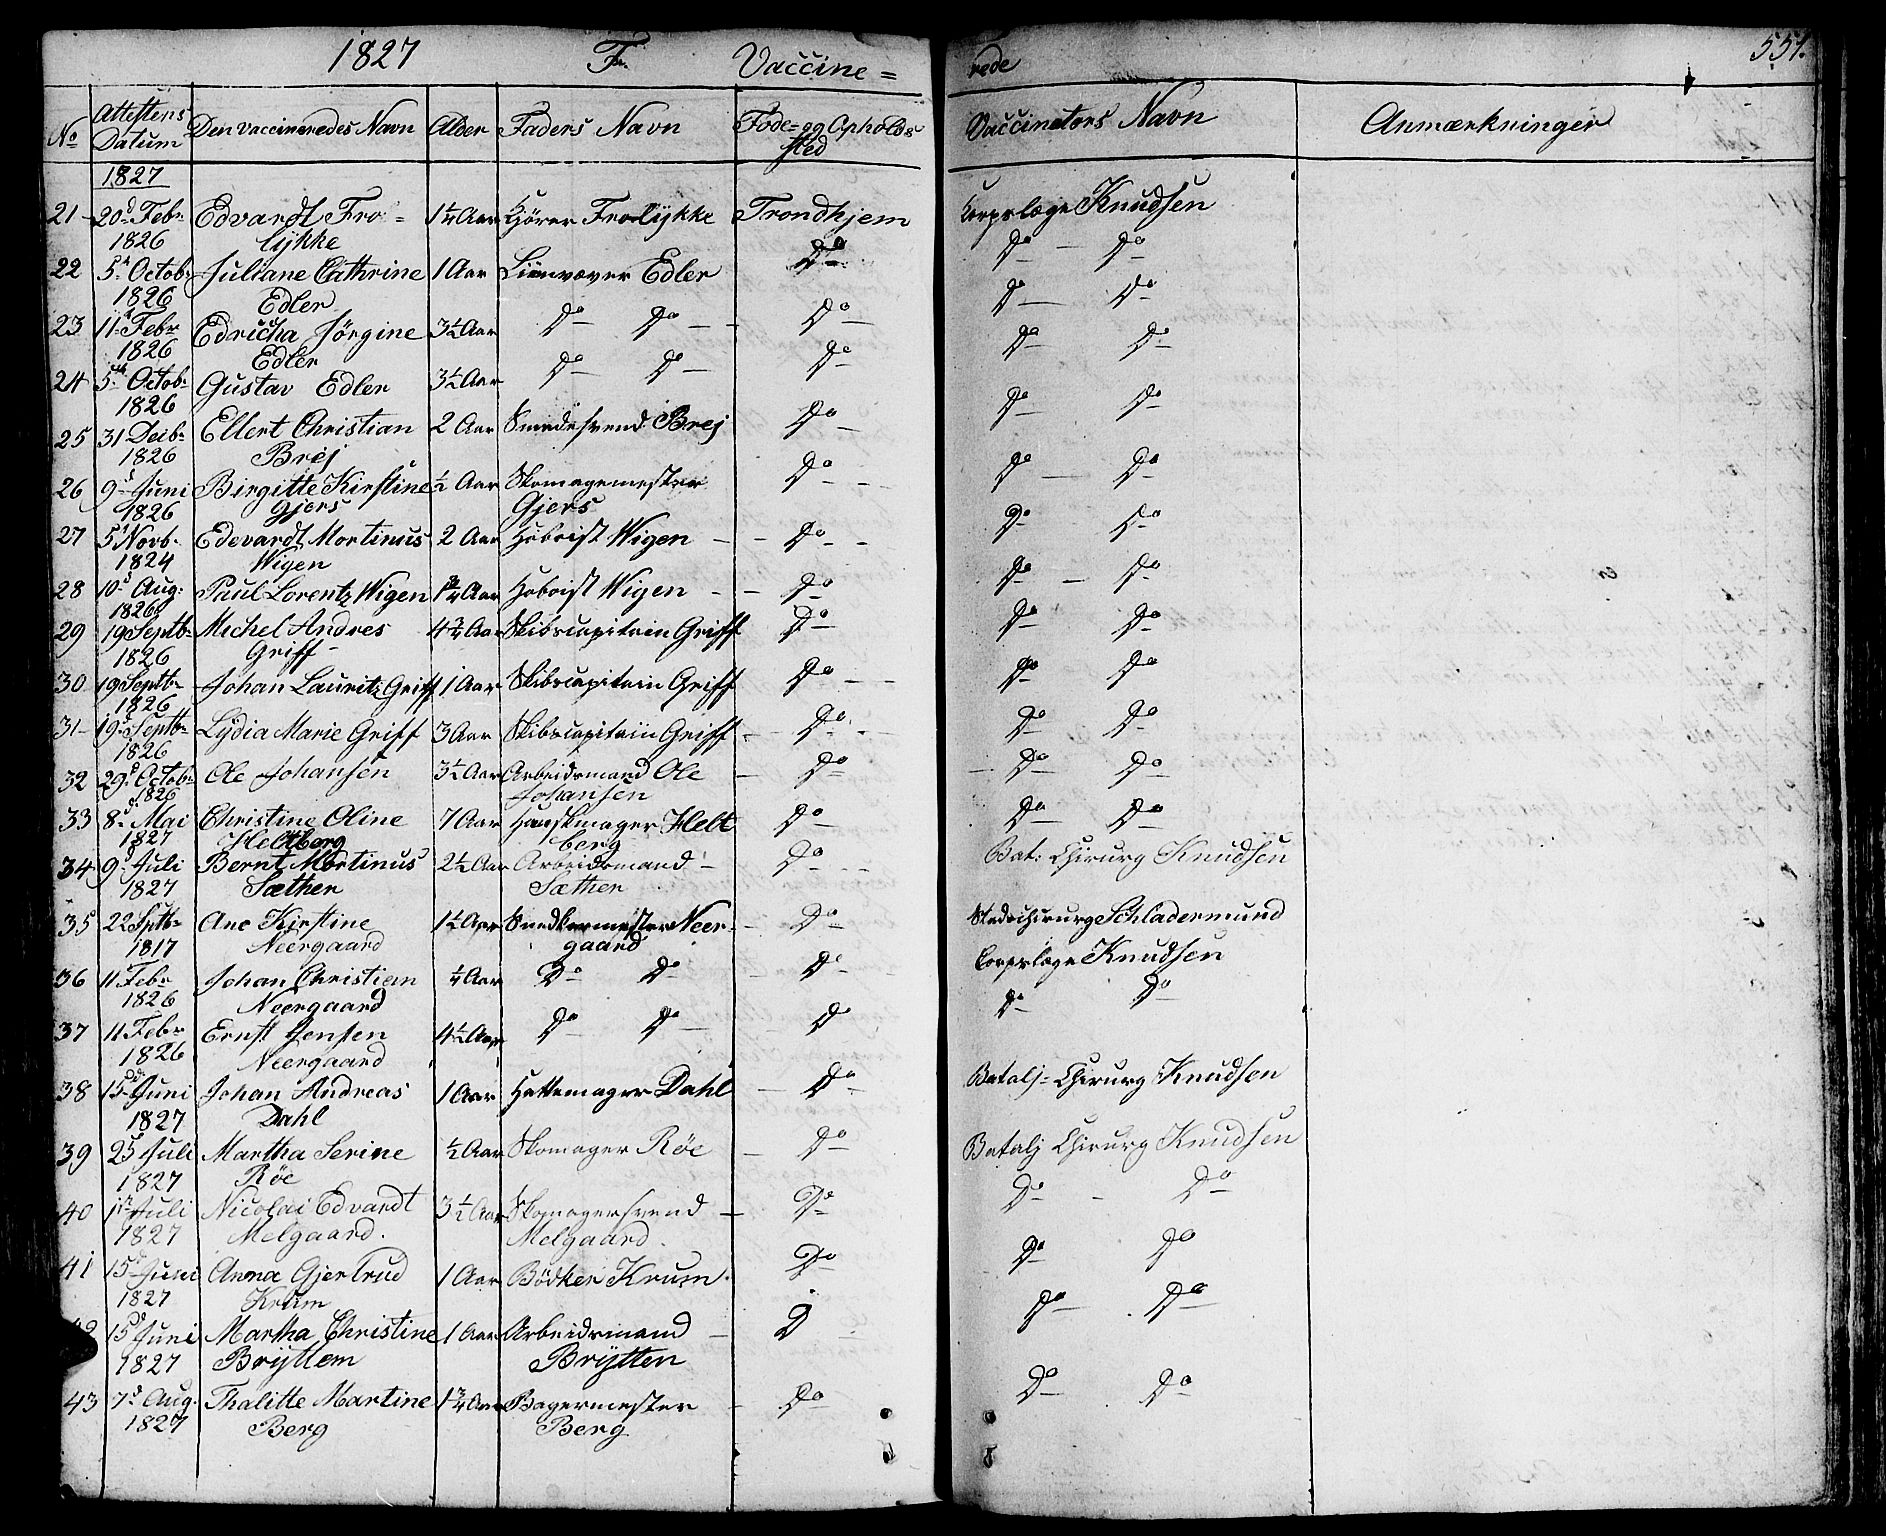 1827 F. Vaccine=
rede 551.
No Attestens Datum Den vaccineredes Navn Alder Faders Navn Føde= og Opholds sted Vaccinators Navn Anmærkninger
1827
21 20d Febr 1826 Edvardt Fro=lykke 1¼ Aar Frolykke Trondhjem Corpslæge Knudsen
22 5t Octob. 1826 Juliane Cathrine Edler 1 Aar Linnvæver Edler Do Do Do
23 11 Febr 1826 Edricha Jørgine Edler 3½ Aar Do Do Do Do Do
24 5te Octob. 1826 Gustav Edler 3½ Aar Do Do Do Do Do
25 31 Decb. 1826 Ellert Christian Brej 2 Aar Smedesvend Brej Do Do Do
26 9d Juni 1826 Birgitte Kirstine Gjers ½ Aar Skomagemester Gjers Do Do Do
27 5t Novb. 1824 Edevardt Mortinus Wigen 2 Aar Hoboist Wigen Do Do Do
28 10d Aug: 1826 Paul Lorentz Wigen 1¾ Aar Hoboist Wigen Do Do Do
29 19 Septb. 1826 Michel Andres Griff 4¾ Aar Skibscapitain Griff Do Do Do
30 19 Septb. 1826 Johan Lauritz Griff 1 Aar Skibscapitain Griff Do Do Do
31 19d Septb. 1826 Lydia Marie Griff 3 Aar Skibscapitain Griff Do Do Do
32 29d Octob. 1826 Ole Johansen 3½ Aar Arbeidsmand Ole Johansen Do Do Do
33 8d Mai 1827 Christine Oline Heltberg 7 Aar Hanskmager Heltberg Do Do Do
34 9d Juli 1827 Bernt Mortinus Sæther 2½ Aar Arbeidsmand Sæther Do Bat: Chirurg Knudsen
35 22 Sptb. 1817 Ane Kirstine Neergaard 1½ Aar Snedkermester Neergaard Do Stadschirurg Schladermund
36 11 Febr. 1826 Johan Christian Neergaard ¼ Aar Do Do Do Corpslæge Knudsen
37 11 Febr 1826 Ernst Jensen Neergaard 4½ Aar Do Do Do Do Do
38 15de Juni 1827 Johan Andreas Dahl 1 Aar Hattemager Dahl Do Batalj= Chirurg Knudsen
39 25 Juli 1827 Martha Serine Røe ½ Aar Skomager Røe Do Batalj Chirurg Knudsen
40 1t Juli 1827 Nicolai Edvardt Melgaard. 3½ Aar Skomagersvend Melgaard. Do Do Do
41 15d Juni 1827 Anna Gjertrud Krum 1 Aar Bødker Krum. Do Do Do
42 15d Juni 1827 Martha Christine Bryttem 1 Aar Arbeidsmand Brytten D Do Do
43 7d Aug. 1827 Thalitte Martine Berg 1¾ Aar Bagermester Berg Do Do Do